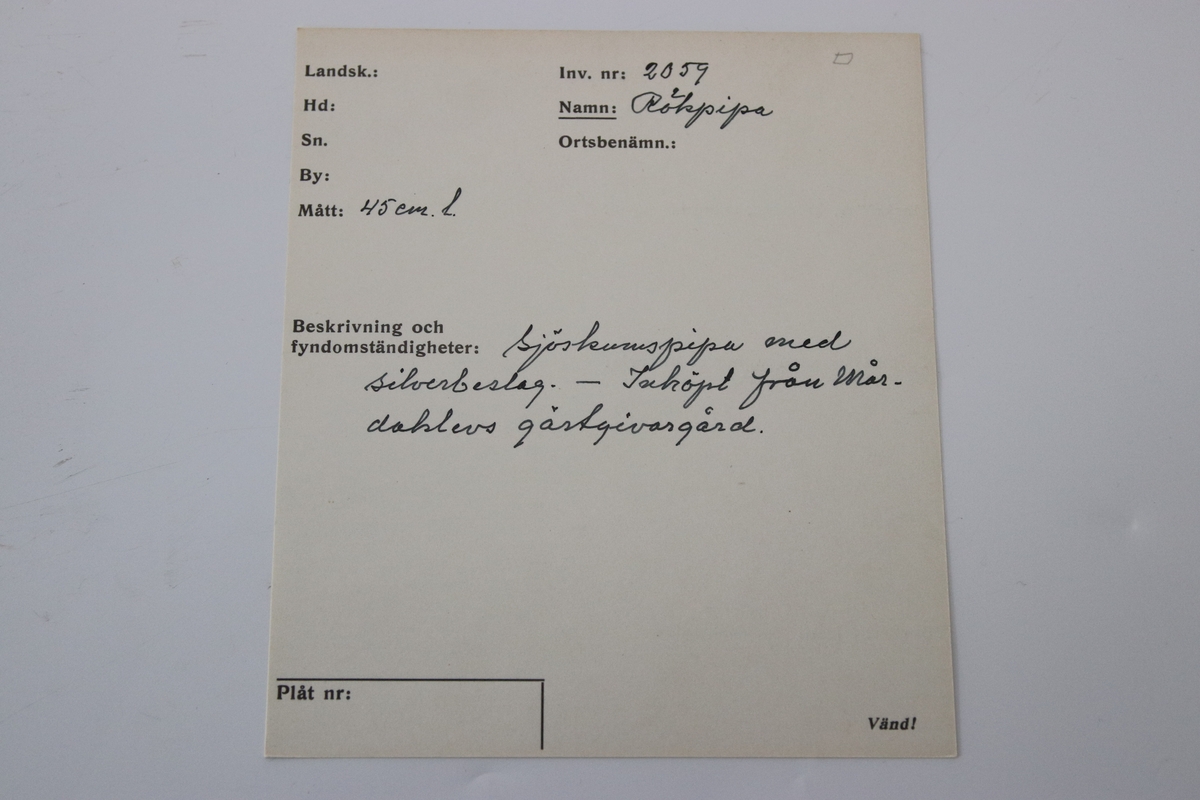 Landsk.:
Inv. nr: 2059
Hd:
Namn: Rökpipa
Sn.
Ortsbenämn.:
By:
Mått: 45 cm. l.
Beskrivning och
fyndomständigheter: Sjöskumspipa med
silverbeslag. — Inköpt från Mår-
daklevs gästgivargård.
Plåt nr:
Vänd!